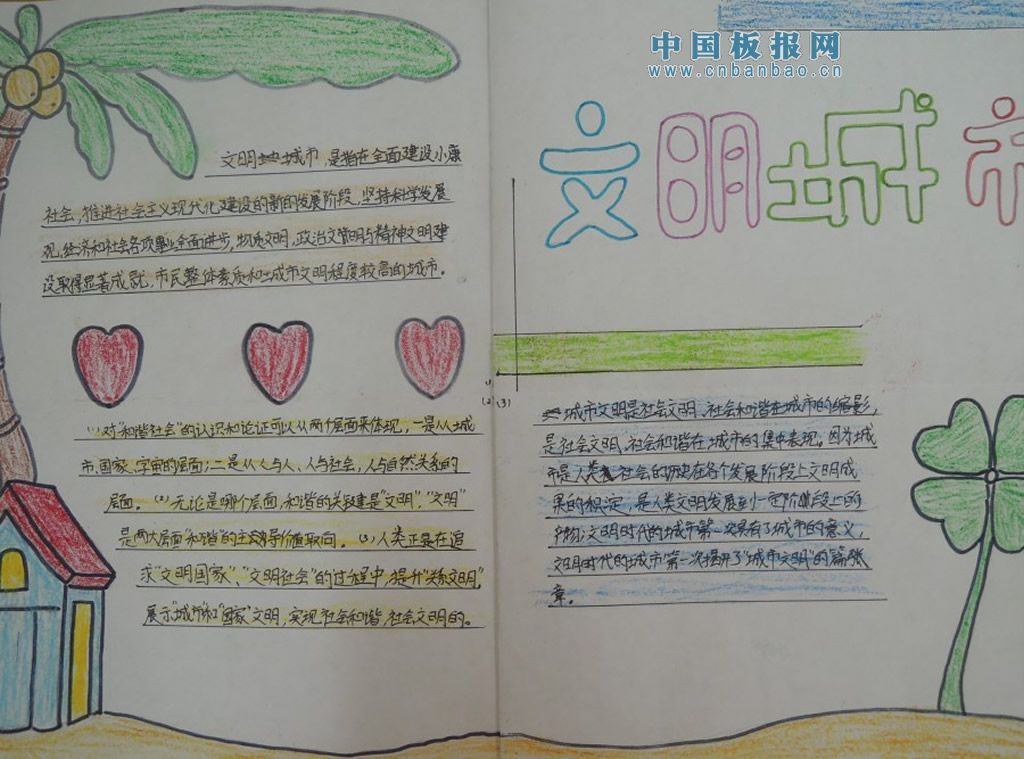 中国板报网
www.cnbanbao.cn
文明城市
文明城市，是指在全面建设小康
社会，推进社会主义现代化建设的新的发展阶段，坚持科学发展
观，经济和社会各项事业全面进步，物质文明，政治文明与精神文明建
设取得显著成就，市民整体素质和城市文明程度较高的城市。
(1)对"和谐社会"的认识和论证可以从两个层面来体现，一是从城
市、国家、宇宙的层面；二是从人与人、人与社会，人与自然关系的
层面。(2)无论是哪个层面，和谐的关键是"文明"，"文明"
是两大层面"和谐"的主导价值取向。(3)人类正是在追
求"文明国家"，"文明社会"的过程中，提升"关系文明"，
展示"城市"和"国家"文明，实现社会和谐，社会文明的。
(2)(3)
城市文明是社会文明、社会和谐在城市的缩影，
是社会文明、社会和谐在城市的集中表现。因为城
市是人类社会的历史在各个发展阶段上文明成
果的积淀，是人类文明发展到一定阶段上的
产物；文明时代的城市第一次具有了城市的意义，
文明时代的城市第一次揭开了"城市文明"的篇张
章。